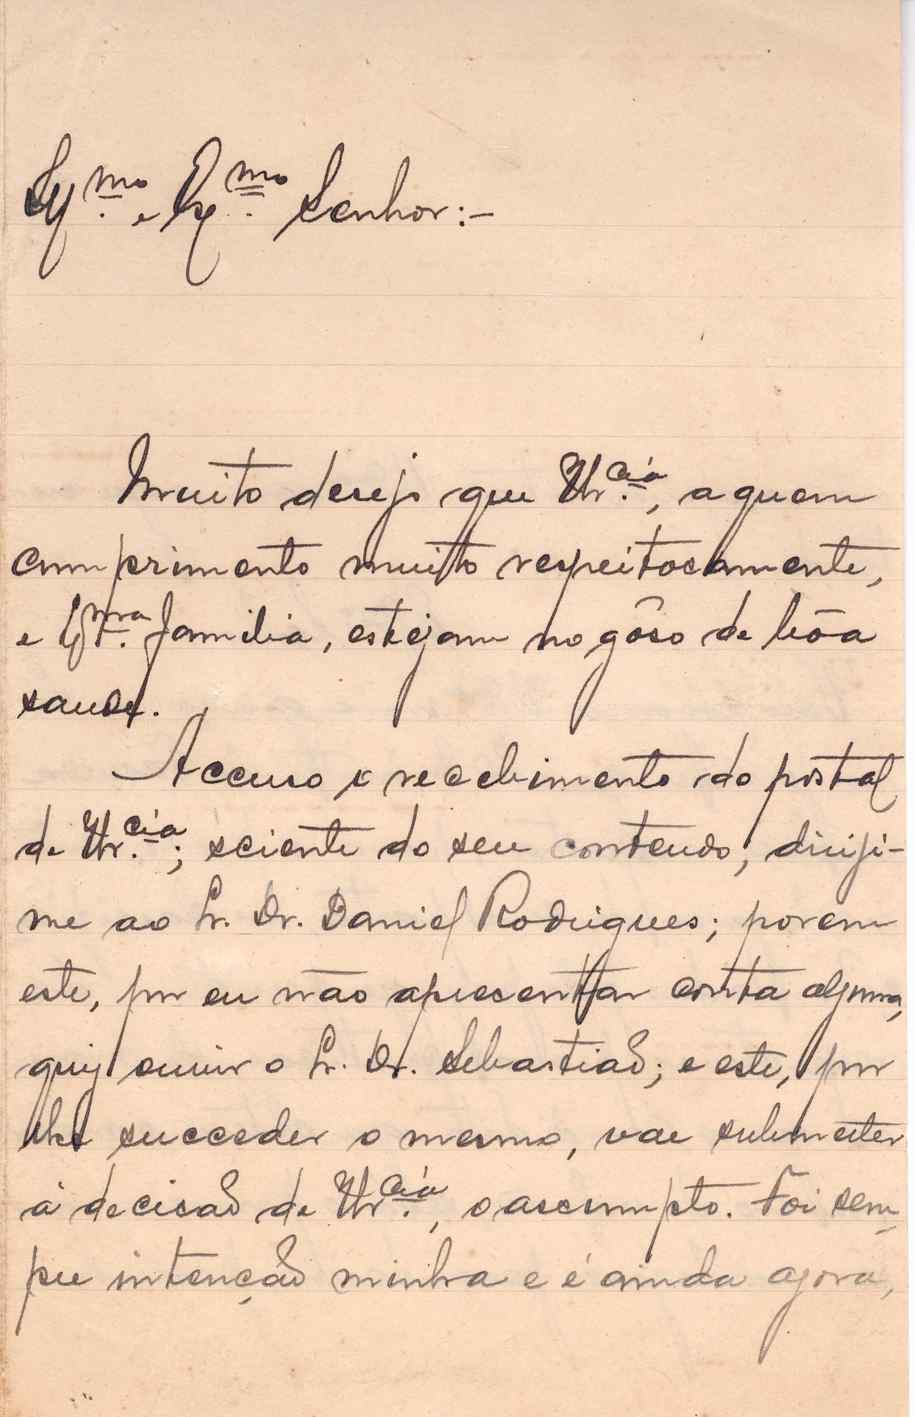 Illmo e Exmo Senhor:-
Muito desejo que V.cia, a quem
cumprimento muito respeitosamente,
e Exma familia, estejam no gôso de bôa
saude.
Accuso o recebimento do postal
de V.cia; sciente do seu conteudo, dirigi-
me ao Sr. Dr. Daniel Rodrigues; porem
este, por eu não apresentar conta alguma,
quiz ouvir o Sr. Dr. Sebastião; e este, por
lhe succeder o mesmo, vae submeter
á decisão de V.cia, o assumpto. Foi sem-
pre intenção minha e é ainda agora,